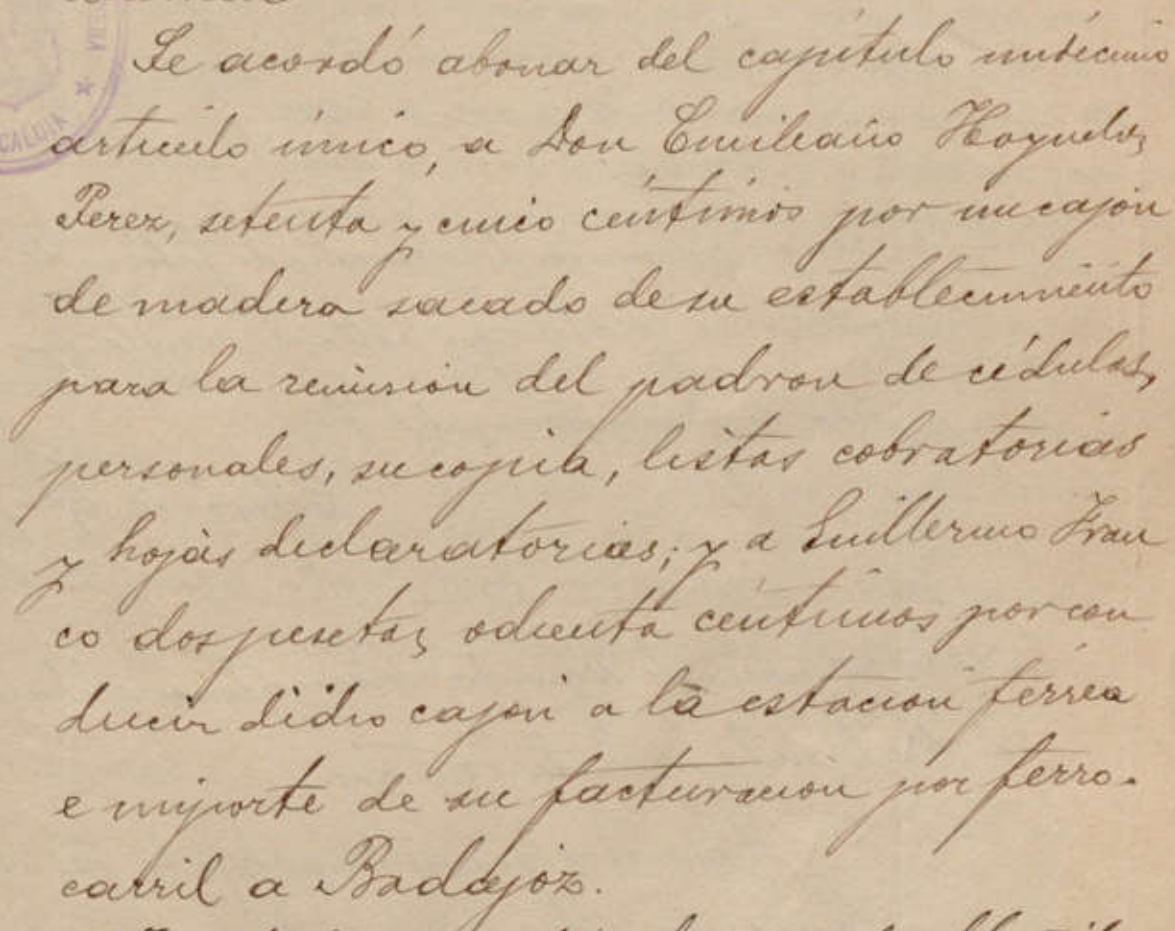 Se acordó abonar del capítulo undécimo
artículo único, a Don Emiliano Hoyuelos
Perez, setenta y cinco céntimos por un cajon
de madera sacado de su establecimiento
para la remision del padron de cédulas,
personales, su copia, listas cobratorias
y hojas declaratorias; y a Guillermo Fran
co dos pesetas ochenta centimos por con
ducir dicho cajon a la estacion ferrea
e importe de su facturacion por ferro-
carril a Badajoz.